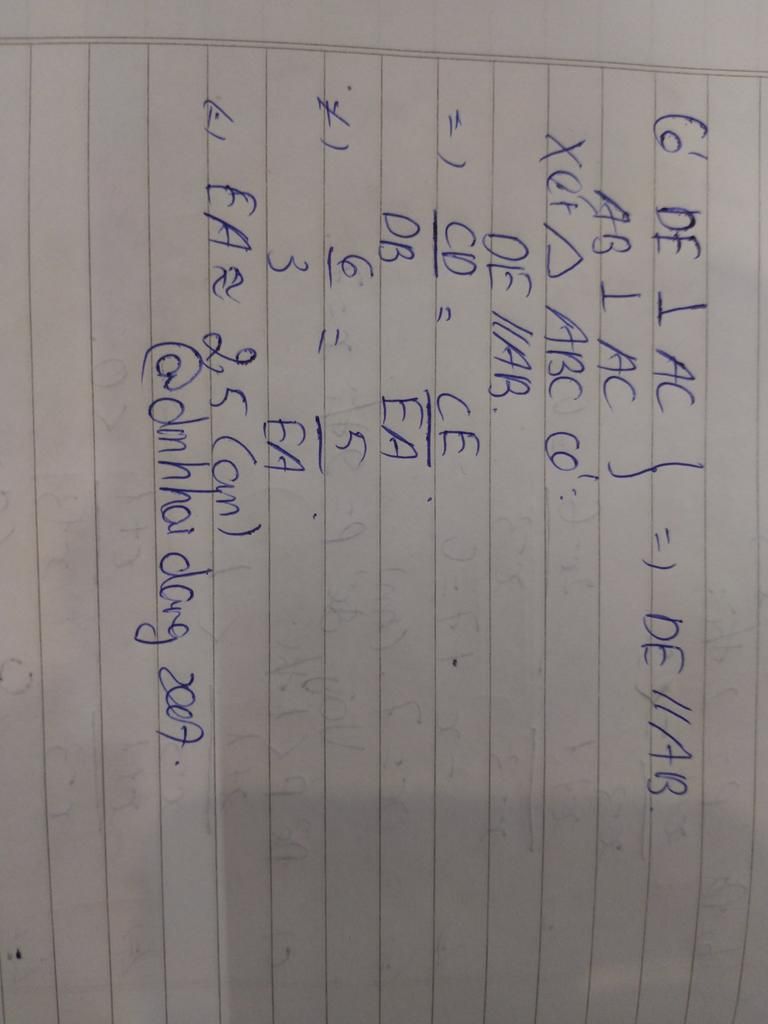 Có DE ⊥ AC
AB ⊥ AC } => DE // AB.
Xét △ ABC có:
DE // AB.
=> CD/DB = CE/EA.
=> 6/3 = 5/EA.
(=) EA ≈ 2,5 (cm)
@dinhhaidang2007.